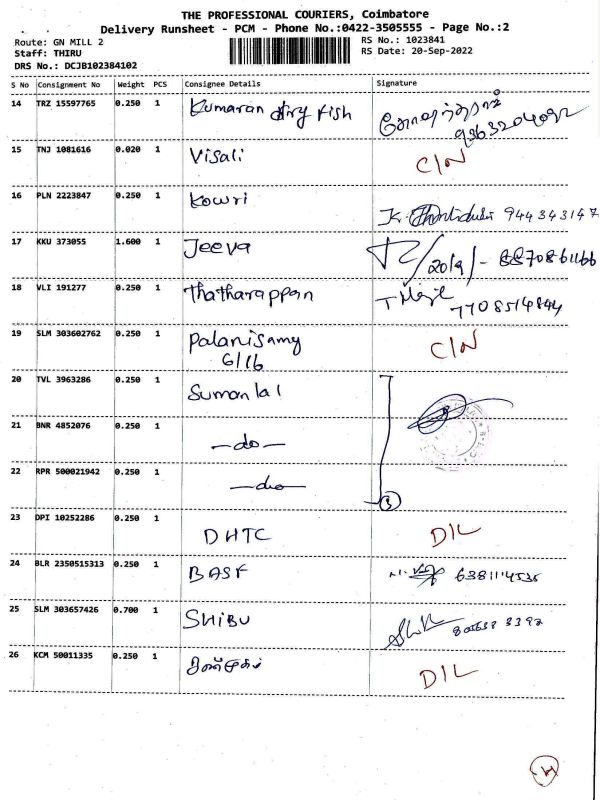 THE PROFESSIONAL COURIERS, Coimbatore
Delivery Runsheet - PCM - Phone No.:0422-3505555 - Page No.:2
Route: GN MILL 2
RS No.: 1023841
Staff: THIRU
RS Date: 20-Sep-2022
DRS No.: DCJB102384102
S No Consignment No Weight PCS Consignee Details Signature
14 TRZ 15597765 0.250 1 Kumaran dry fish
15 TNJ 1081616 0.020 1 Visali C/N
16 PLN 2223847 0.250 1 Kowri K. 944343147
17 KKU 373055 1.600 1 Jeeva 20/9/- 8870861166
18 VLI 191277 0.250 1 Thatharappan 7708514844
19 SLM 303602762 0.250 1 Palanisamy C/N
6/16
20 TVL 3963286 0.250 1 Sumanlal
21 BNR 4852076 0.250 1 -do-
22 RPR 500021942 0.250 1 -do-
3
23 DPI 10252286 0.250 1 DHTC D/L
24 BLR 2350515313 0.250 1 BASF 6381114535
25 SLM 303657426 0.700 1 SHIBU
26 KCM 50011335 0.250 1 D/L